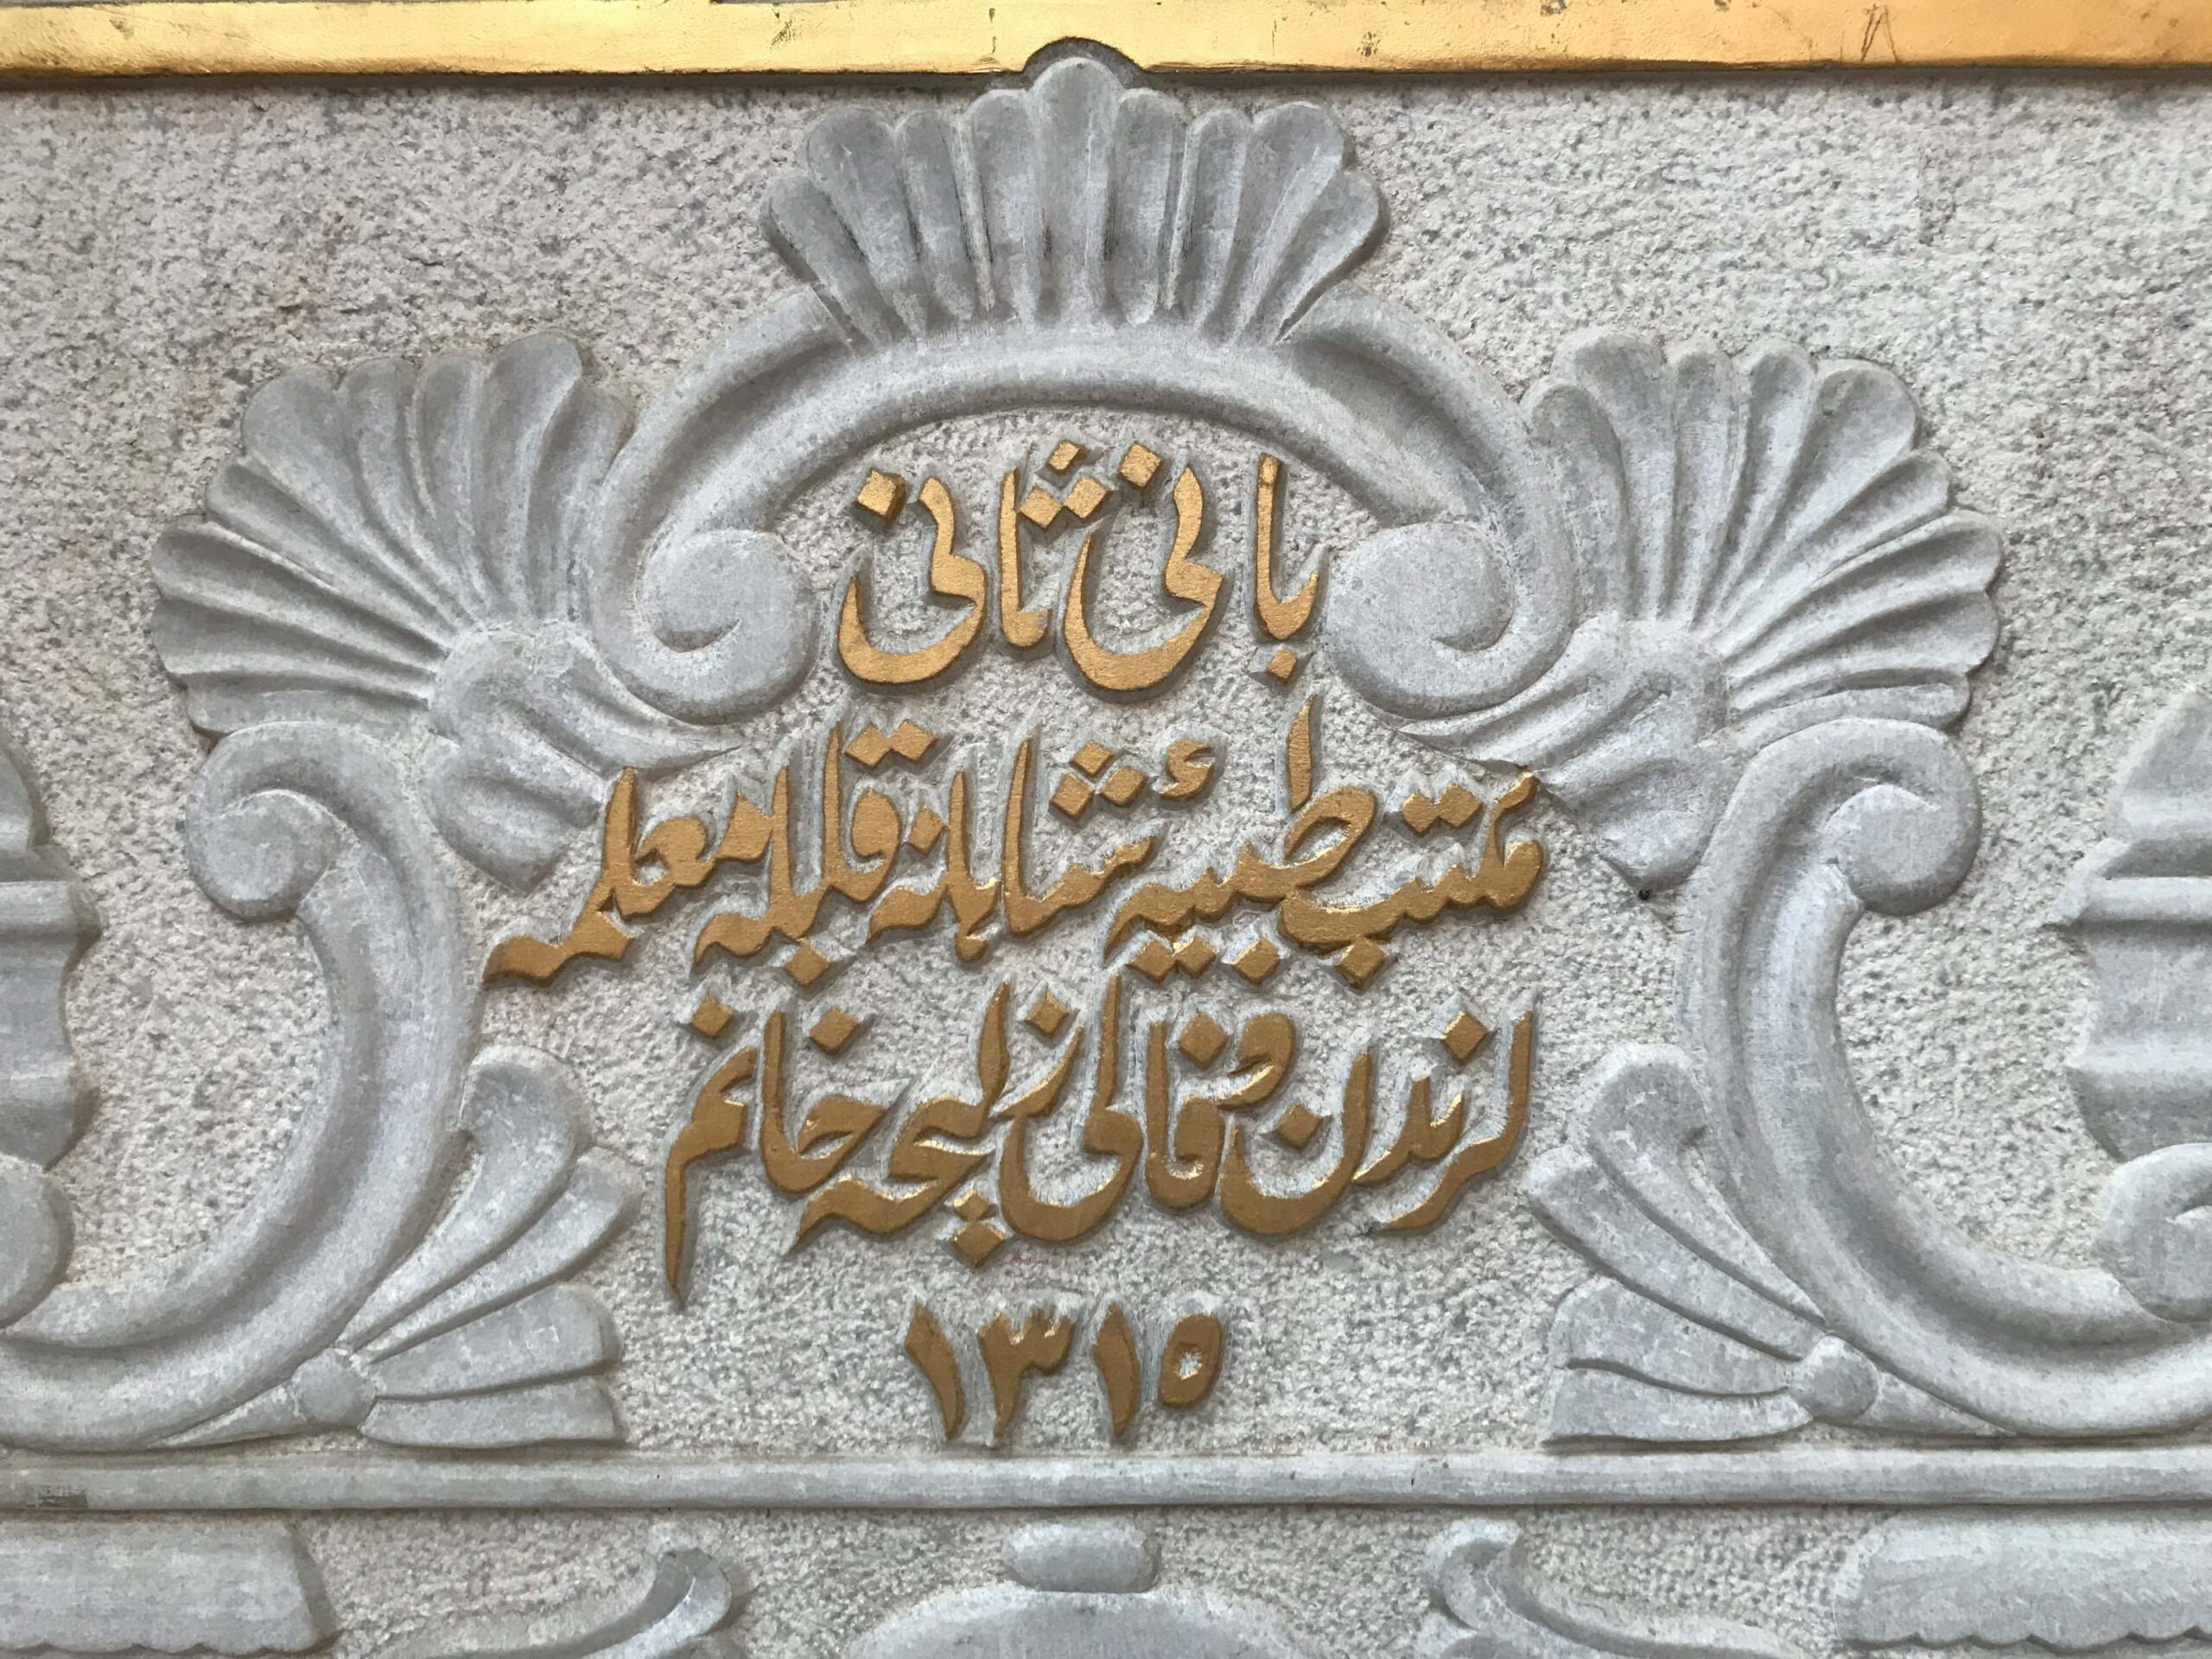 بانئ ثانی
مكتب طبیهٔ شاهانه قبله معلمه
لرندن فنالی زلیجه خانم
١٣١٥